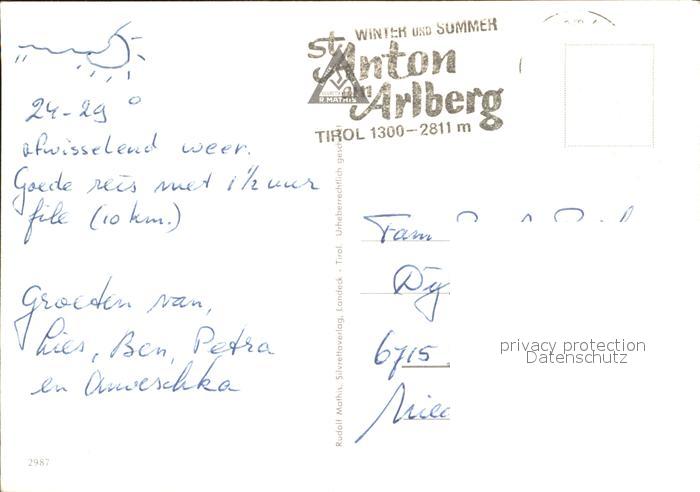 24-29°
afwisselend weer.
Goede reis met 1½ uur
file (10 km.)
Groeten van,
Lies, Ben, Petra
en Anneschka
2987
WINTER UND SOMMER
St. Anton
am
Arlberg
R. MATHIS
TIROL 1300-2811 m
Rudolf Mathis, Silvrettaverlag, Landeck - Tirol. Urheberrechtlich
Fam
6715
privacy protection
Datenschutz